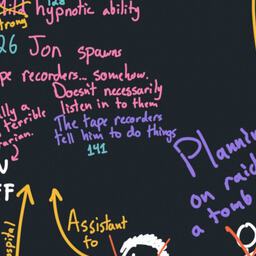 128
Mild hypnotic ability
strong
26 Jon spawns
pe recorders... somehow.
Doesn't necessarily
listen in to them
The tape recorders
tell him to do things
141
lly a
terrible
arian.
N
FF
Planning
on raid
a tomb
ospital
Assistant
to